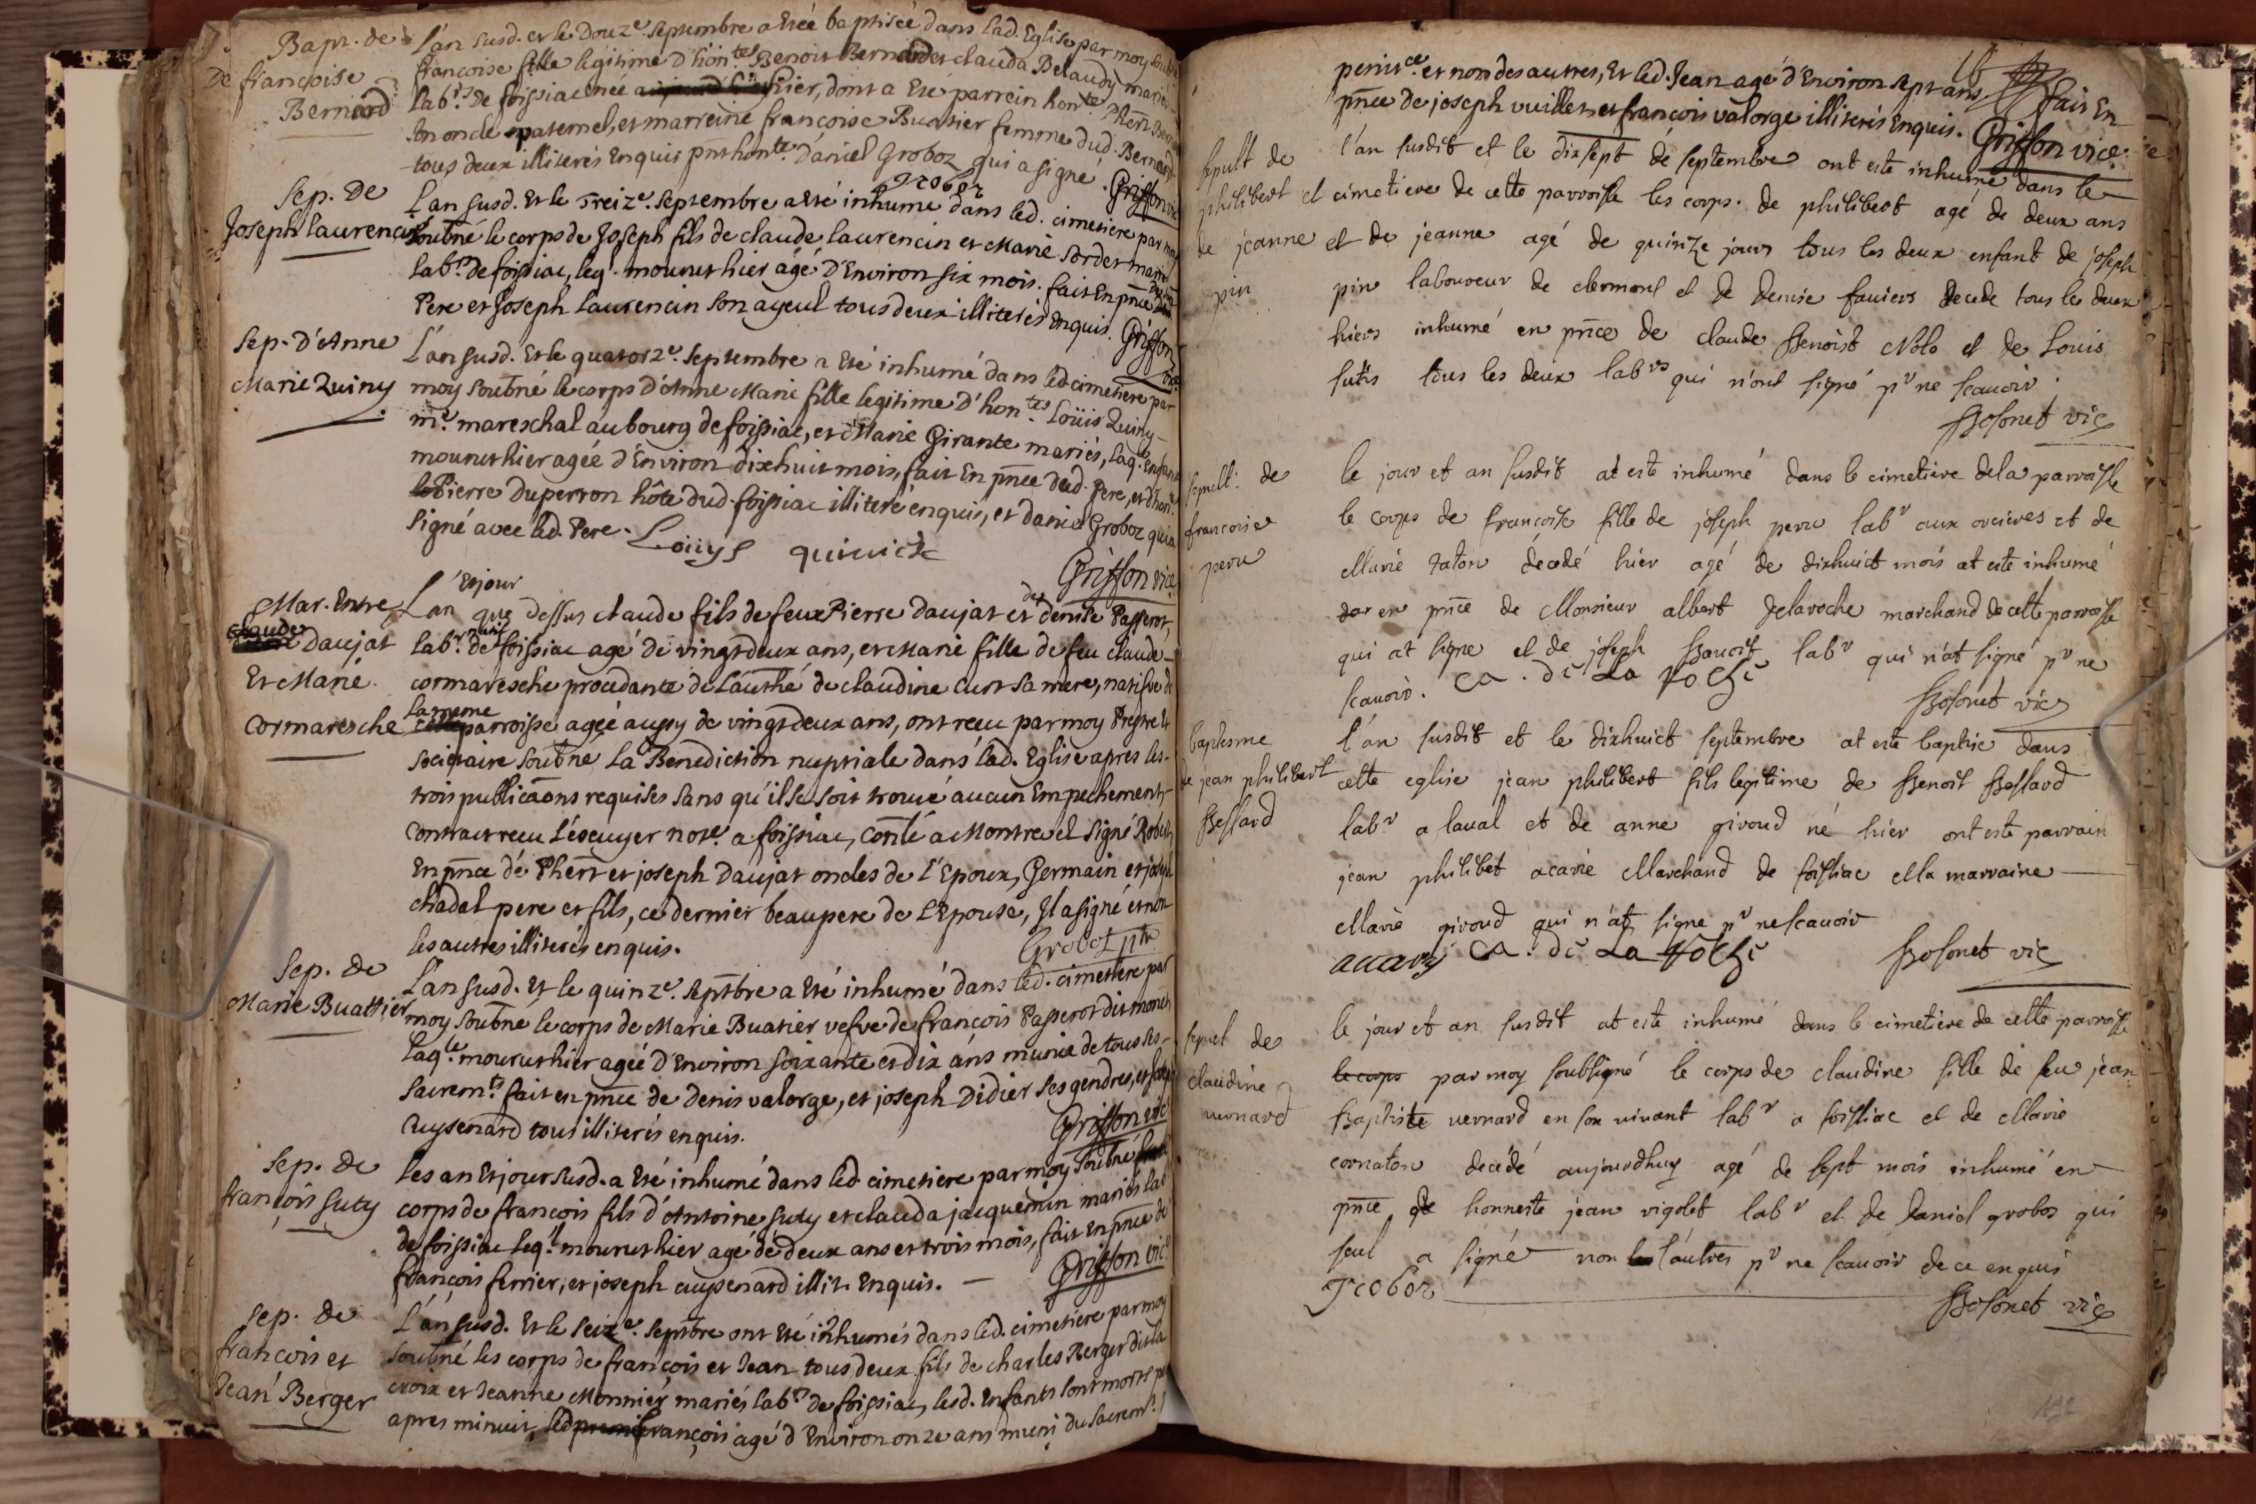 Bapt. de
De françoise
Bernard
L'an susd. et le Douz.e septembre a été baptisée dans lad. Eglise par moy
françoise fille légitime d'hon.tes Benoit Bernard et clauda Belaudy mariés
lab.rs de foissiac née hier, dont a été parrein hon.te
son oncle paternel, et marreine françoise Buatier femme dud. Bernard
tous deux illiterés enquis pnt hon.te daniel Groboz qui a signé. Griffon vic
Groboz
Sep. De
Joseph laurencin
L'an susd. Et le Treiz.e septembre a eté inhumé dans led. cimetiere par moy
soubné le corps de Joseph fils de claude laurencin et Marie Sorder mariés
lab.rs de foissiac, leq. mourut hier âgé d'Environ six mois. fait En pnce
Pere et Joseph Laurencin son ayeul tous deux illiterés enquis. Griffon vic.
Sep. D'Anne
Marie Quiny
L'an susd. Et le quatorz.e septembre a Eté inhumé dans led cimetiere par
moy soubné le corps d'Anne Marie fille legitime d'hon.tes Loüis Quiny
m.e mareschal au bourg de foissiac, et Marie Girante mariés, laq.
mourut hier agée d'Environ dixhuit mois, fait En pnce dud. Pere, et d'hon.
Pierre Duperron hôte dud. foissiac illiteré enquis, et daniel Groboz qui a
signé avec led. Pere. Loüys
Griffon vic.
Mar. Entre
claude daujat
Et Marie
Cormaresche
L'an Et jour que dessus claude fils de feux Pierre daujat et de denise Passerot,
lab.r natif de foissiac agé de vingt deux ans, et Marie fille de feu claude
cormaresche procedante de l'authé de claudine Curt sa mere, natifve de
la mme parroisse agée aussy de vingt deux ans, ont receu par moy Prestre et
societaire soubné la Benediction nuptiale dans lad. Eglise apres les
trois publicãons requises sans qu'il se soit trouvé aucun Empechement
contract receu L'escuyer not.e a foissiac, conlé a Montrevel signé Robelin
En pnce de Phert et joseph Daujat oncles de l'Epoux, Germain et joseph
chadal pere et fils, ce dernier beaupere de l'Epouse, Il a signé et non
les autres illiterés enquis. Groboz ptr
Sep. de
Marie Buattier
L'an susd. Et le quinz.e septbre a Eté inhumé dans led. cimetiere par
moy soubné le corps de Marie Buatier vefve de françois Passerot dit
laq.le mourut hier agée d'Environ soixante et dix ans munie de tous les
sacrem.ts fait en pnce de denis valorge, et joseph Didier ses gendres, et
Cuysenard tous illiterés enquis. Griffon vic
Sep. de
françois suty
Les an Et jour susd. a Eté inhumé dans led. cimetiere par moy soubné
corps de françois fils d'Antoine suty et clauda jacquemin mariés lab
de foissiac leq.l mourut hier agé de deux ans et trois mois, fait en pnce de
françois ferrier, et joseph cuysenard illit. Enquis. — Griffon vic
Sep. de
françois et
Jean Berger
L'an susd. Et le seiz.e septbre ont Eté inhumés dans led. cimetiere par moy
soubné les corps de françois et Jean tous deux fils de charles Berger dit la
croix et Jeanne Monnier mariés lab.rs de foissiac, lesd. Enfants sont morts
apres minuit, led françois âgé d'Environ onze ans muni du sacrem.t
penit.ce et non des autres, Et led. Jean agé d'Environ sept ans fait En
pnce de joseph vuillet et françois valorge illiterés Enquis. Griffon vic.
sepult de
philibert et
de jeanne
pin
l'an susdit et le dixsept de septembre ont este inhumé dans le
cimetiere de cette parroisse les corps. de philibert agé de deux ans
et de jeanne agé de quinze jours tous les deux enfant de joseph
pin laboureur de clermont et de denise faviers decede tous les deux
hiers inhumé en pnce de claude Benoist Nolo et de Louis
sutis tous les deux lab.rs qui n'ont signé p.r ne scavoir.
Bosonet vic
sepult. de
francoise
peru
le jour et an susdit at este inhumé dans le cimetiere dela parroisse
le corps de françoise fille de joseph peru lab.r aux orcieres et de
Marie taton décedé hier agé de dixhuict mois at este inhumé
en pnce de Monsieur albert Delaroche marchand de cette parroisse
qui at signe et de joseph Benoit lab.r qui n'at signé p.r ne
scavoir. Ca. de La Roche
Bosonet vic
baptisme
de jean philibert
Bessard
l'an susdit et le dixhuict septembre at este baptise dans
cette eglise jean philibert fils legitime de Benoit Bessard
lab.r a laval et de anne giroud né hier ont este parrain
jean philibet acarie Marchand de foissiac et la marraine
Marie giroud qui n'at signe p.r ne scavoir
accary Ca. de La Roche Bosonet vic
sepul de
claudine
vernard
le jour et an susdit at este inhumé dans le cimetiere de cette parroisse
le corps par moy soubsigné le corps de claudine fille de feu jean
Baptiste vernard en son vivant lab.r a foissiac et de Marie
cornaton decédé aujourdhuy agé de sept mois inhumé en
pnce de honneste jean vigolet lab.r et de daniel grobos qui
seul a signé non l'autres p.r ne scavoir de ce enquis
Groboz
Bosonet vic